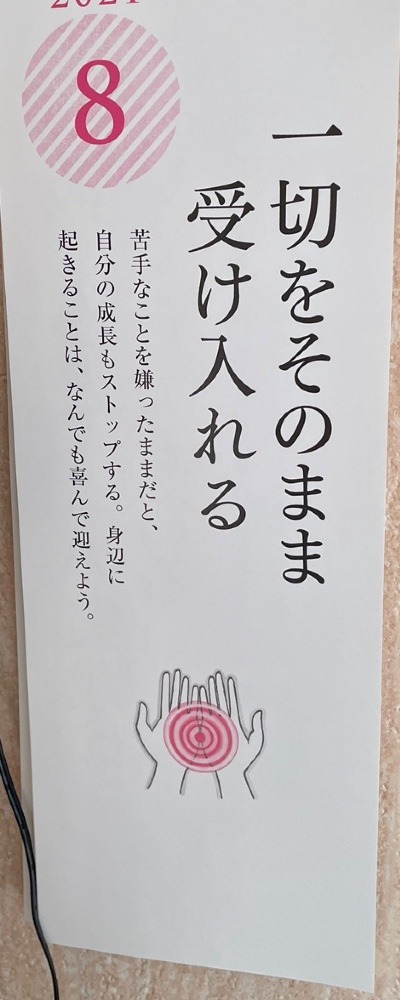 8
一切をそのまま
受け入れる
苦手なことを嫌ったままだと、
自分の成長もストップする。身辺に
起きることは、なんでも喜んで迎えよう。